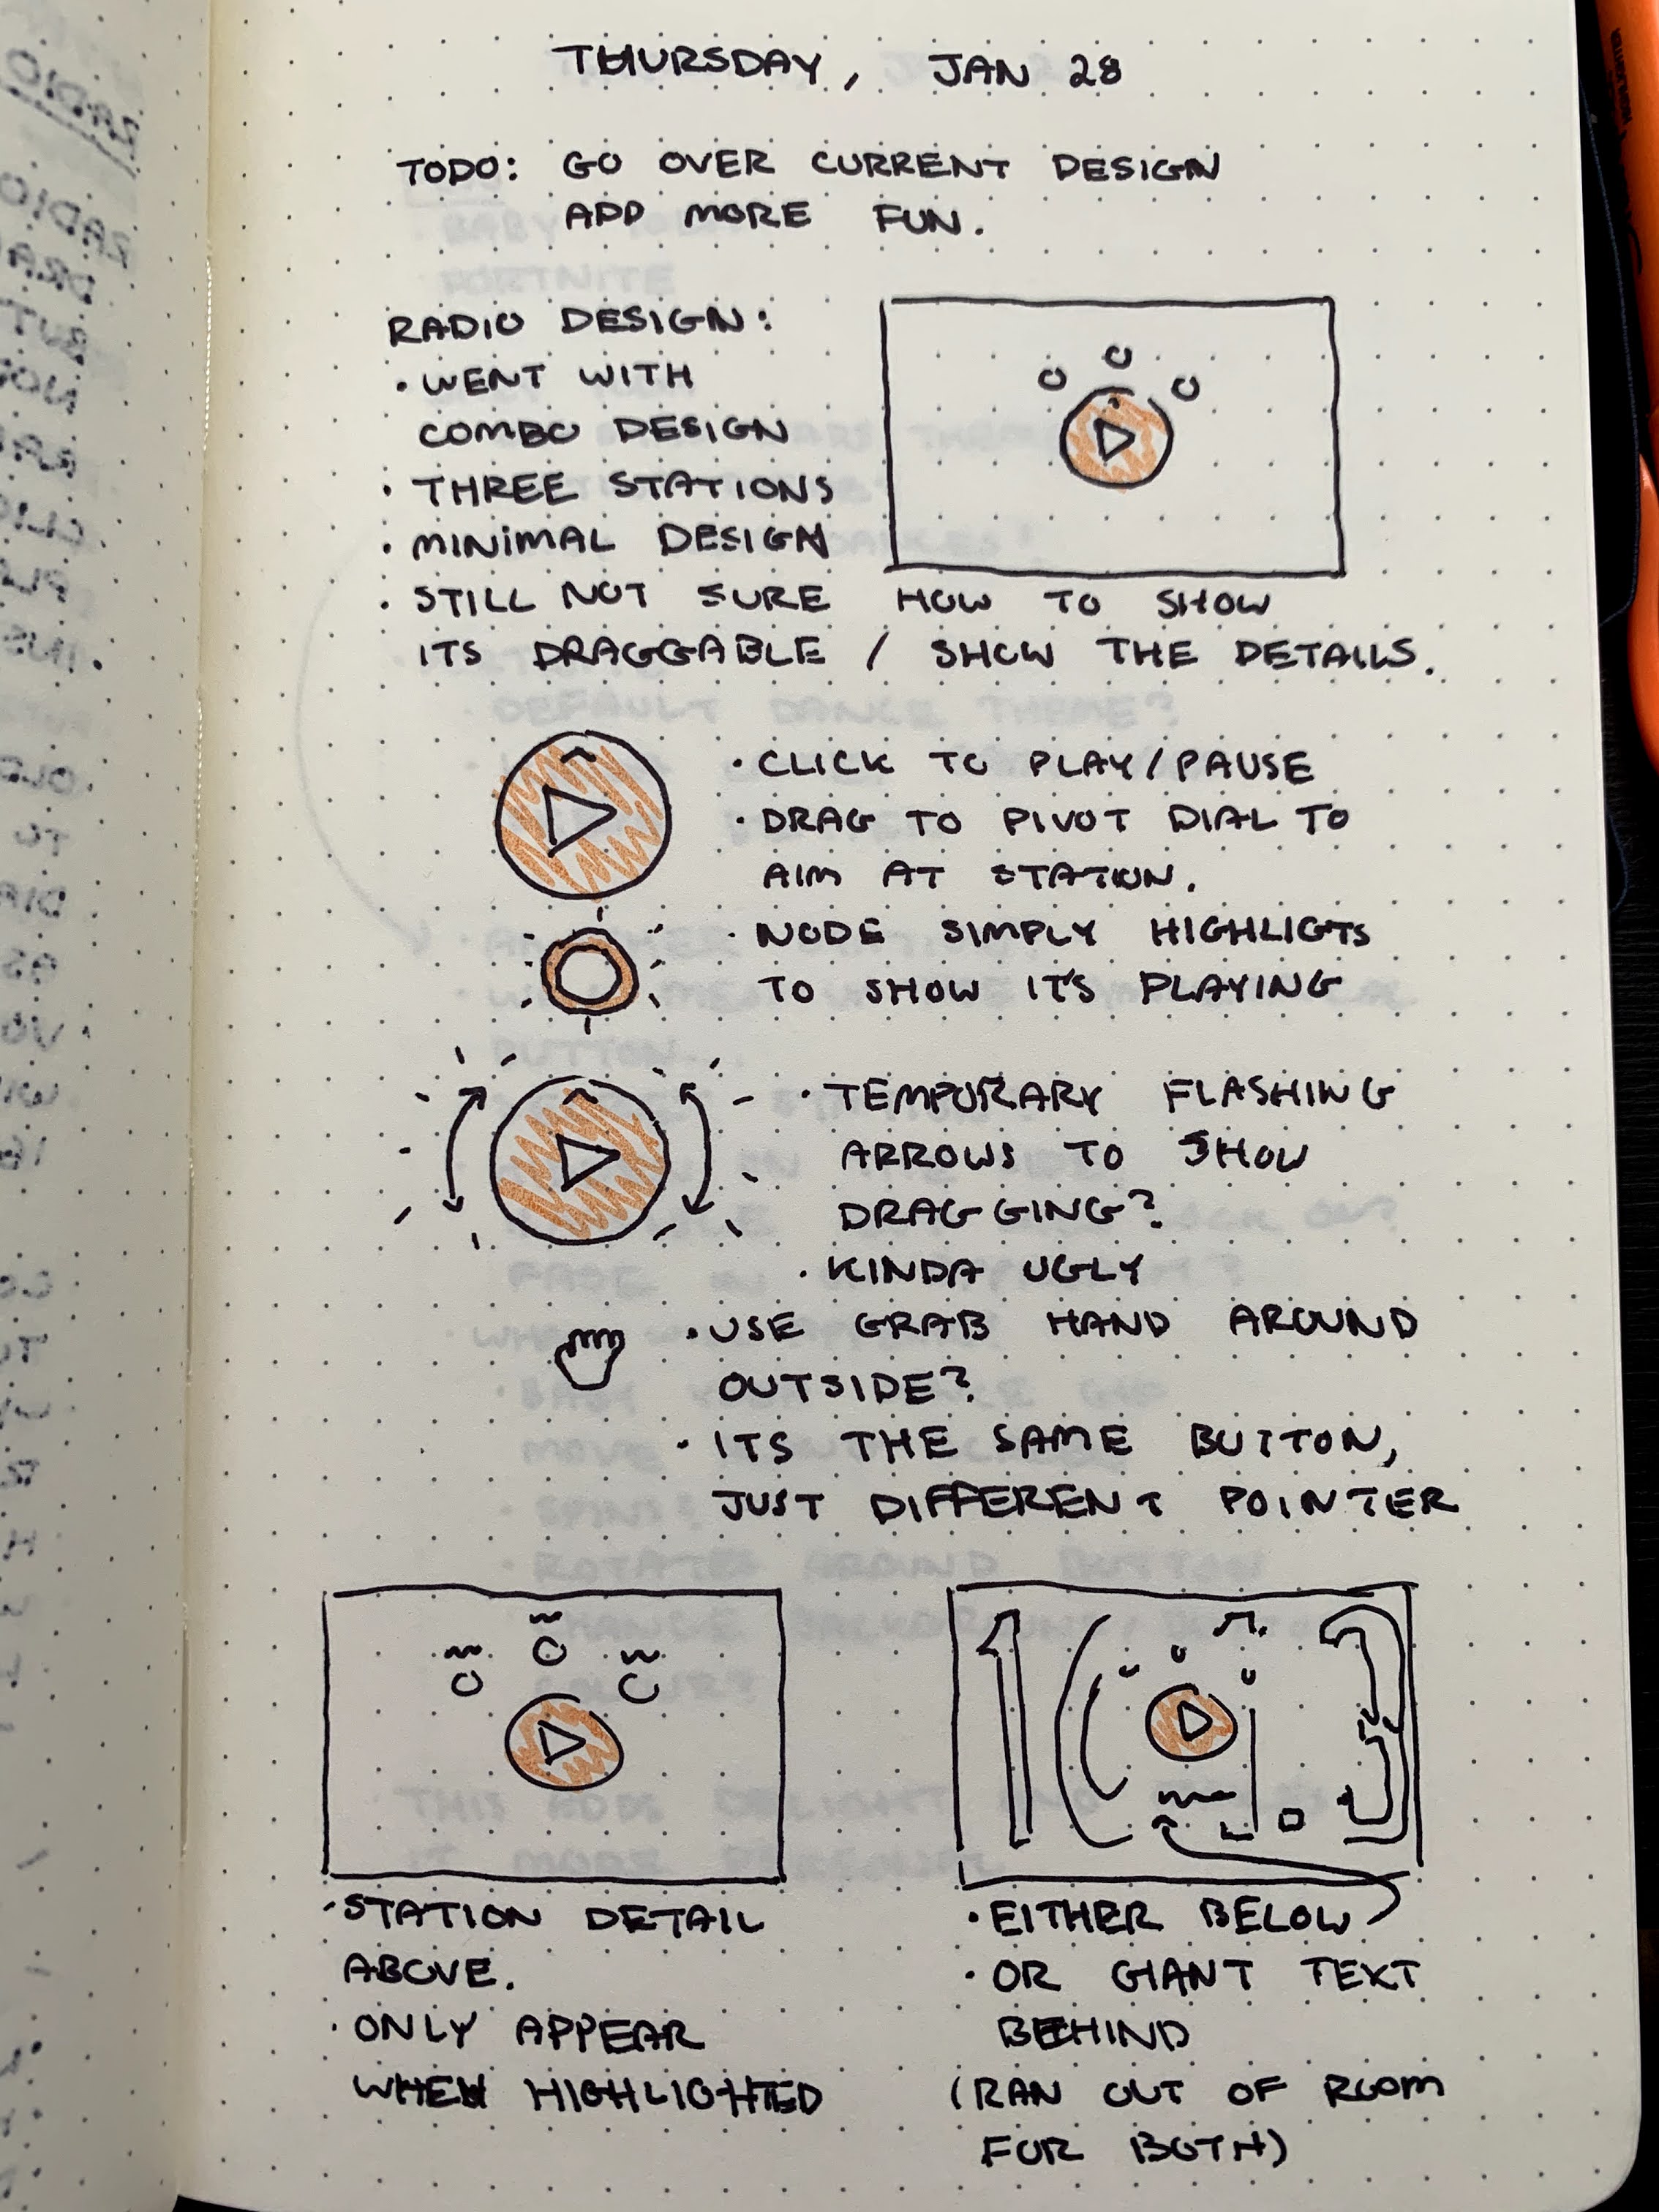 THURSDAY, JAN 28
TODO: GO OVER CURRENT DESIGN
ADD MORE FUN.
RADIO DESIGN:
• WENT WITH
COMBO DESIGN
• THREE STATIONS
• MINIMAL DESIGN
• STILL NOT SURE HOW TO SHOW
ITS DRAGGABLE / SHOW THE DETAILS.
• CLICK TO PLAY/PAUSE
• DRAG TO PIVOT DIAL TO
AIM AT STATION.
• NODE SIMPLY HIGHLIGTS
TO SHOW IT'S PLAYING
• TEMPORARY FLASHING
ARROWS TO SHOW
DRAGGING?
• KINDA UGLY
• USE GRAB HAND AROUND
OUTSIDE?
• ITS THE SAME BUTTON,
JUST DIFFERENT POINTER
• STATION DETAIL
ABOVE.
• ONLY APPEAR
WHEN HIGHLIGHTED
• EITHER BELOW
• OR GIANT TEXT
BEHIND
(RAN OUT OF ROOM
FOR BOTH)